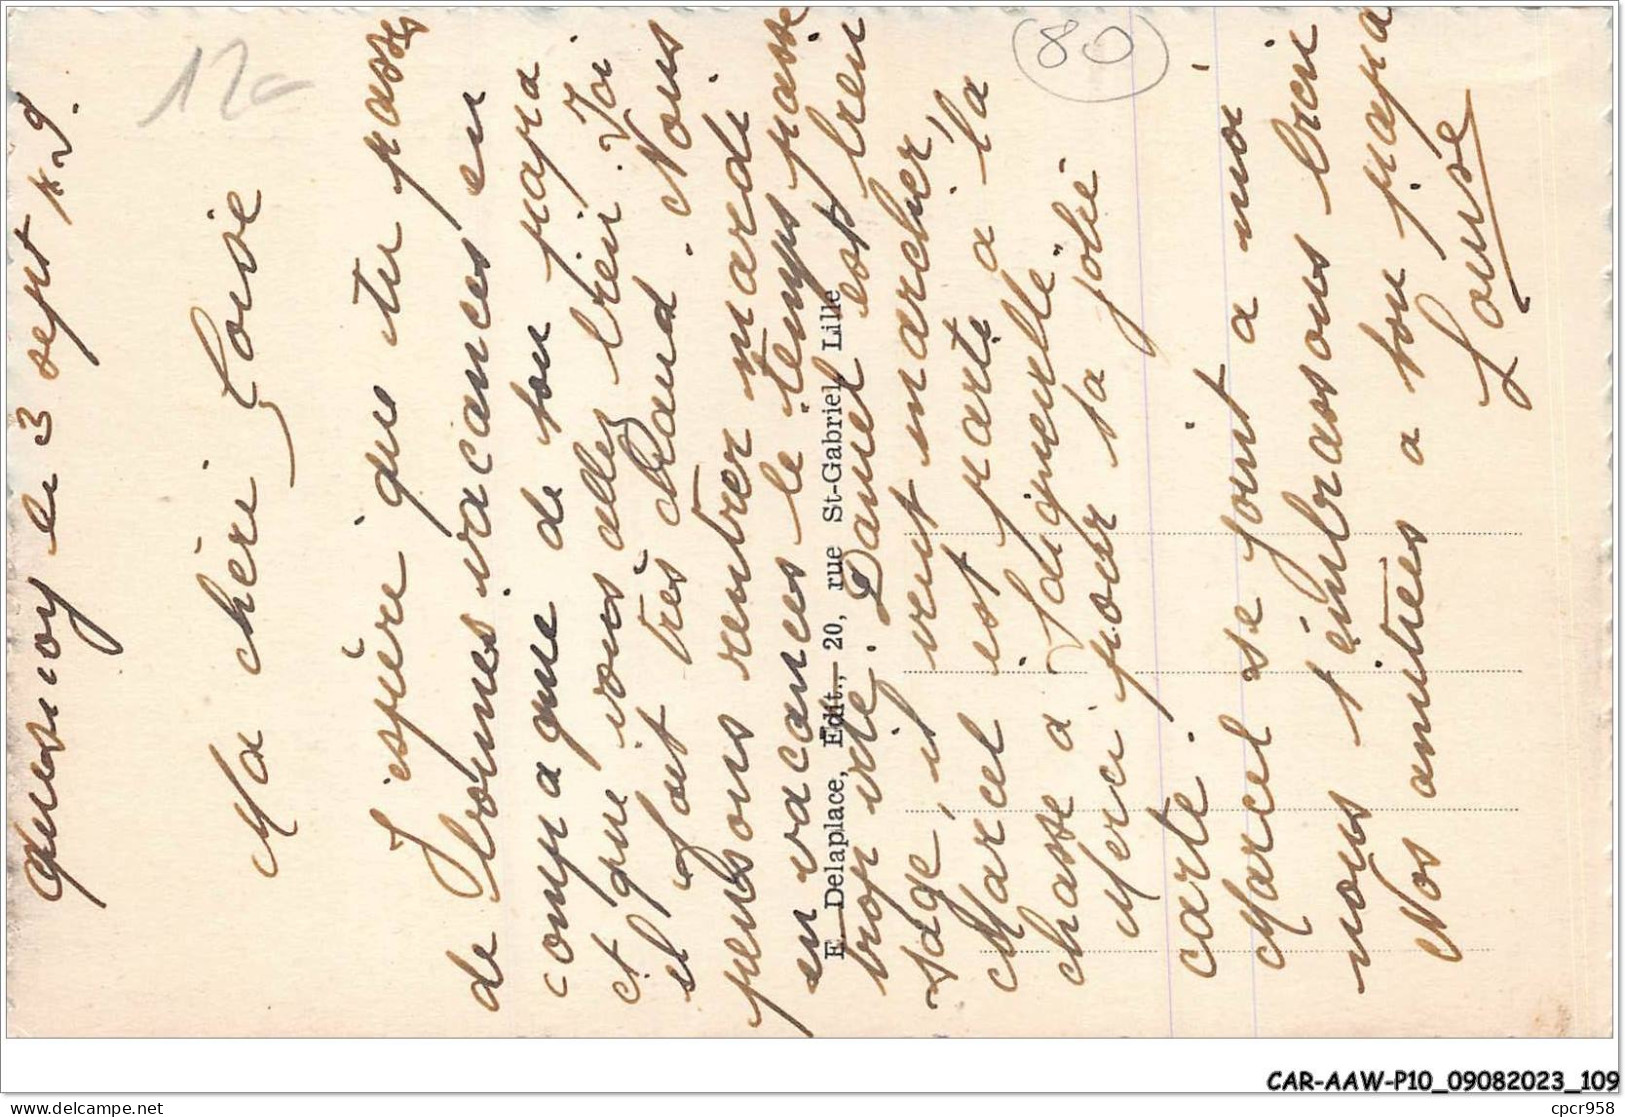 Quesnoy le 3 sept 49.
Ma chère Louise
J'espère que tu passes
de bonnes vacances en
compagnie de ton papa
et que vous allez bien. Ici
il fait très chaud. Nous
pensons rentrer mardi
en vacances le temps passe
trop vite. Daniel est bien
sage, il veut marcher,
Marcel est parti à la
chasse à
Merci pour ta jolie
carte.
Marcel se joint a moi
nous t'embrassons bien
Nos amitiés a ton papa
Louise
E. Delaplace, Edit., 20, rue St-Gabriel Lille
12
80
CAR-AAW-P10_09082023_109
cpcr958